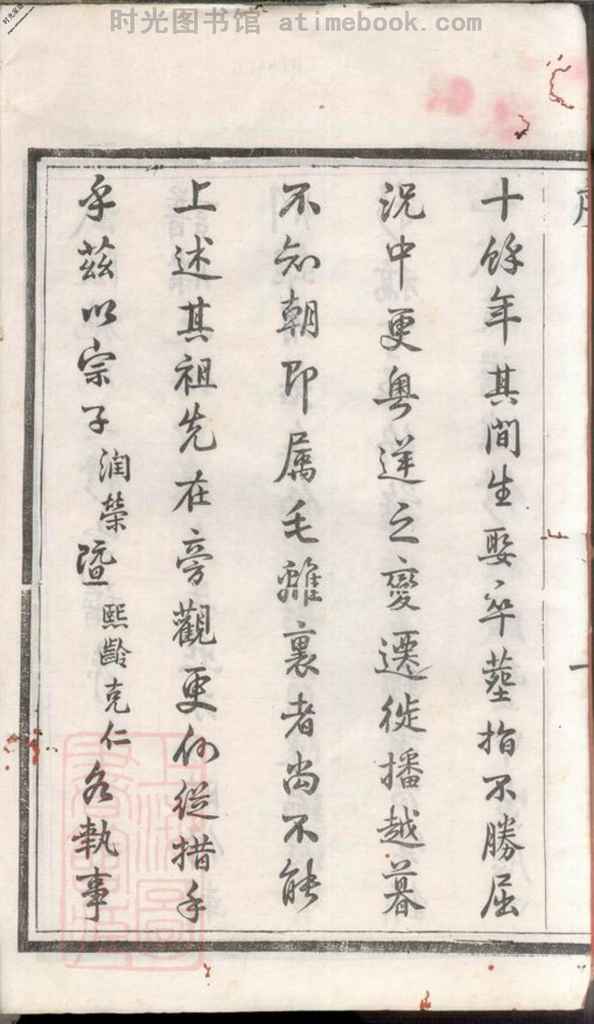 时光图书馆 atimebook.com
十餘年其間生娶卒塟指不勝屈
況中更粵逆之變遷徙播越暮
不知朝即属毛離裏者尚不能
上述其祖先在旁觀更何從措手
乎茲以宗子润榮暨熙齡克仁各執事